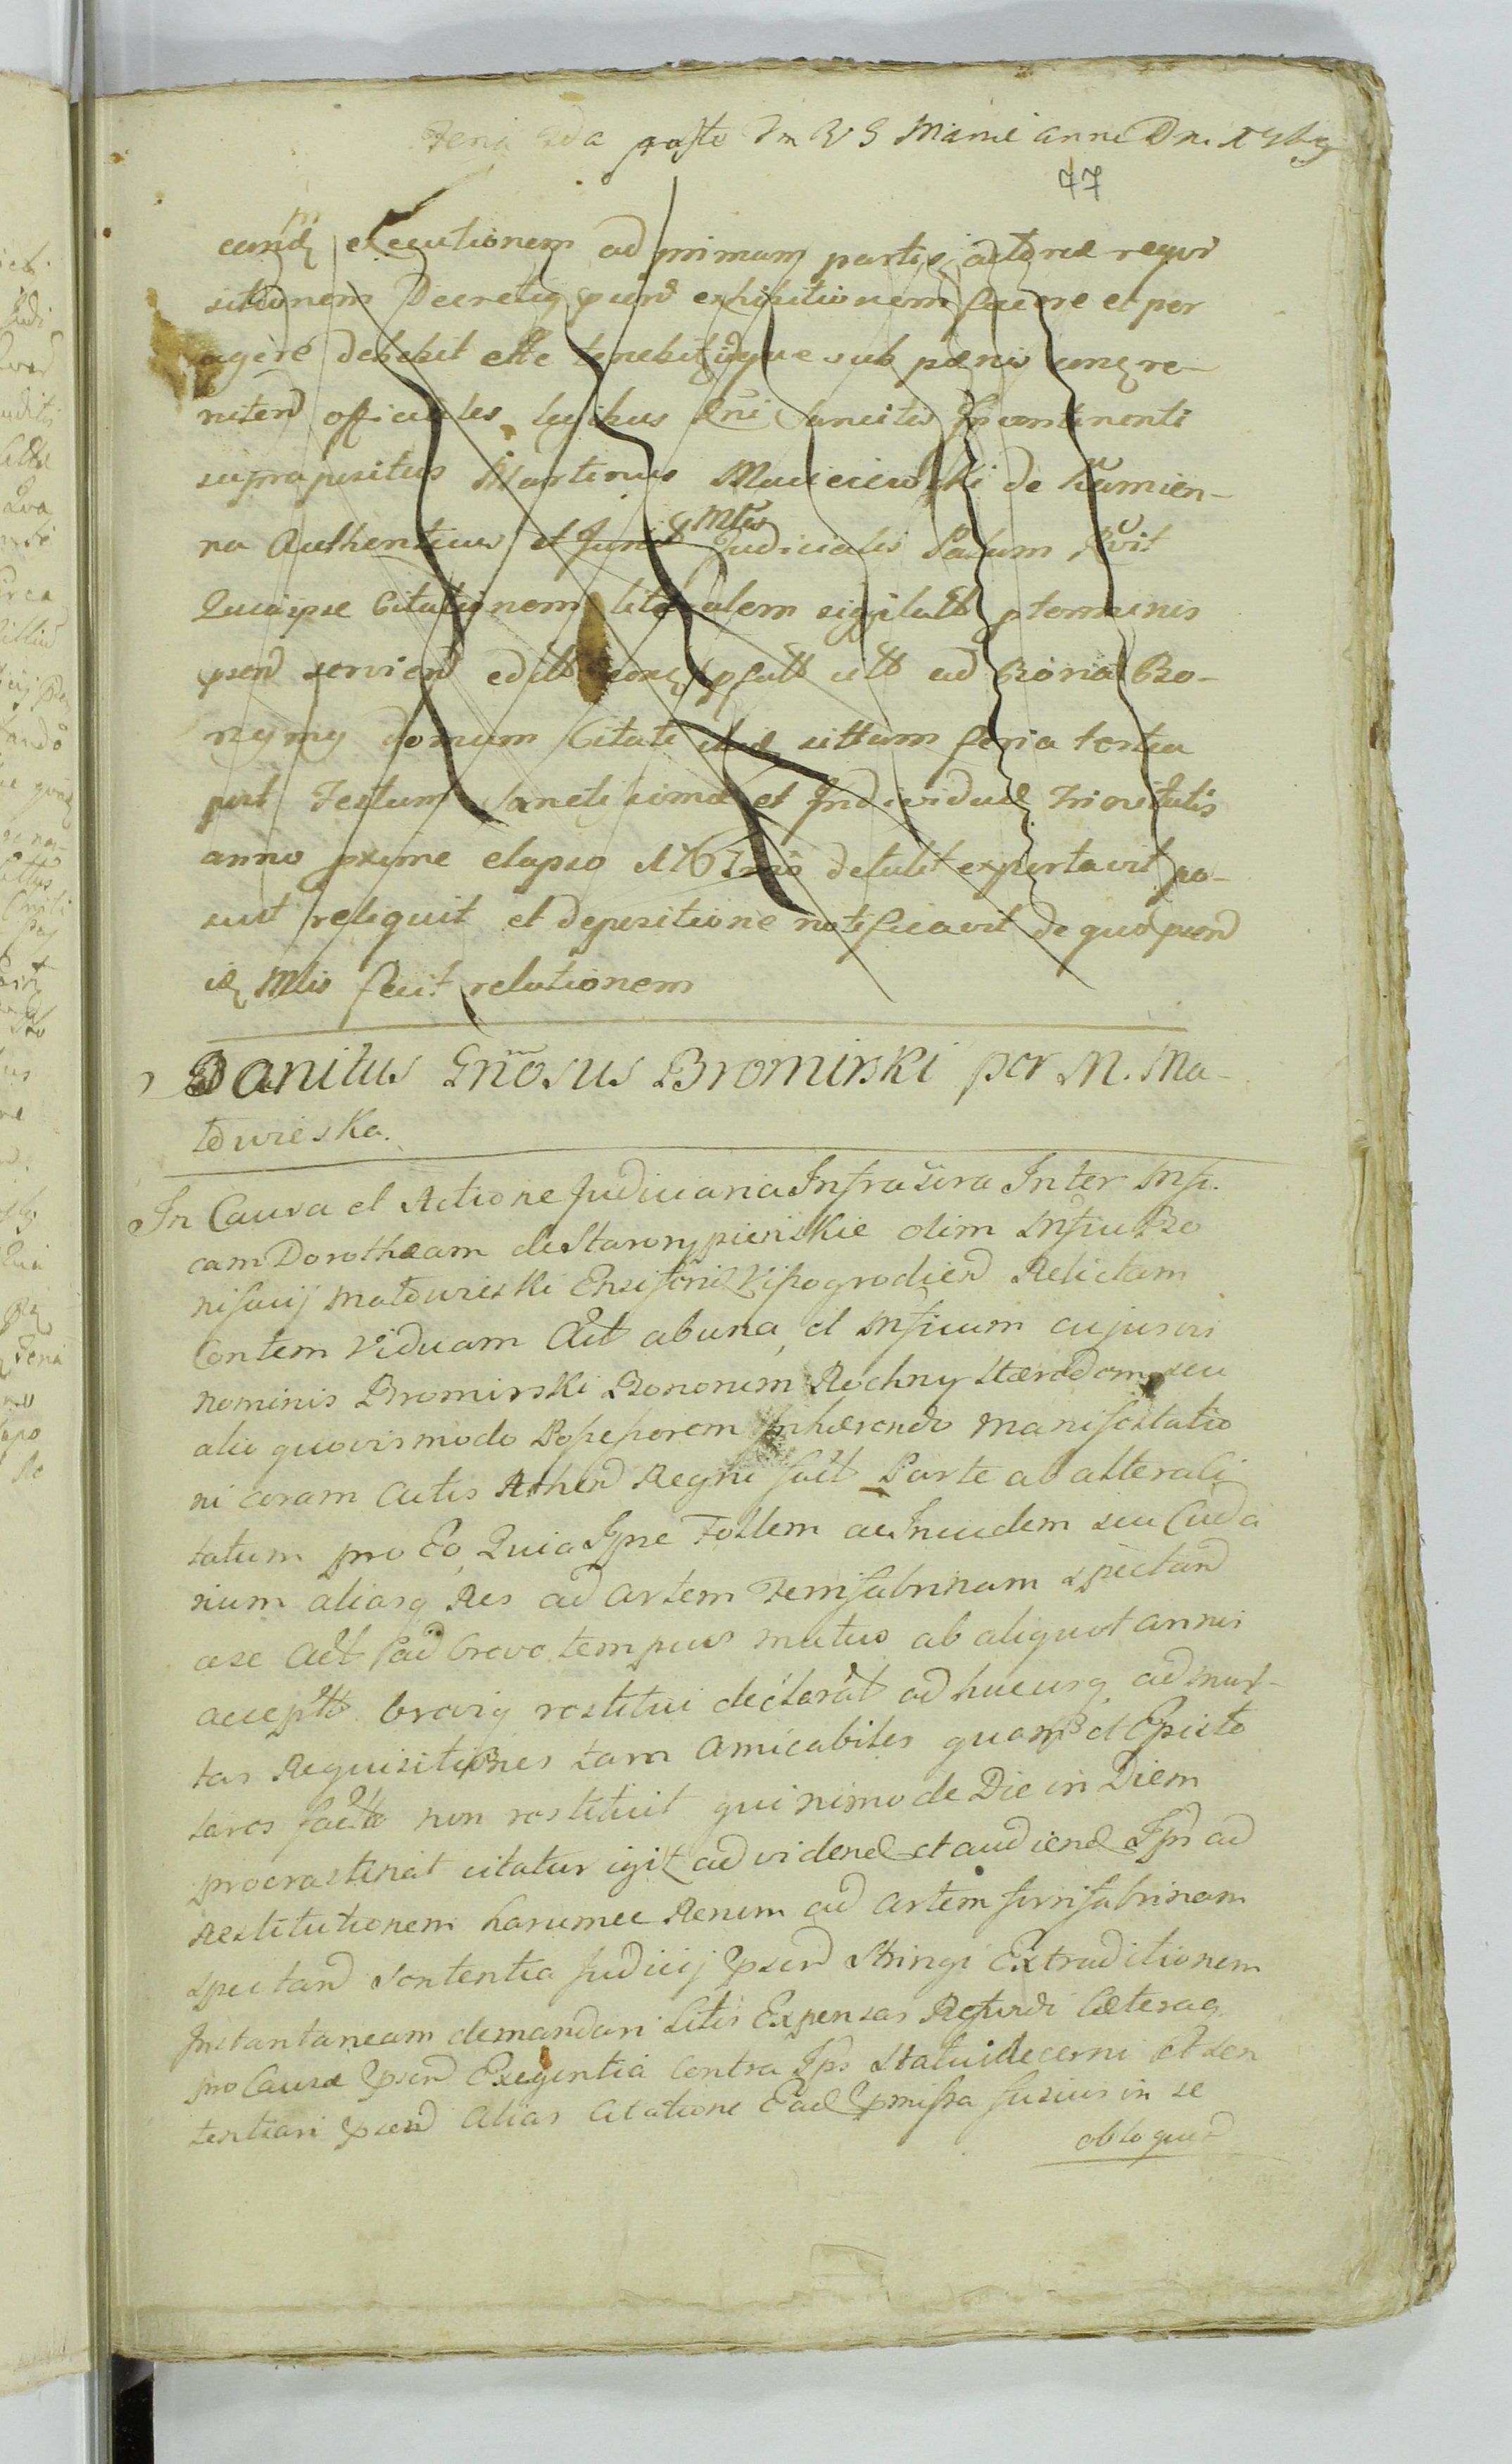 Feria 2da post Fm V S Mariæ anno Dni
47
eamdq executionem ad primam partis actoreæ requi
sitionem Decretiq psend exhibitionem facere et per
agere debebit et tenebit idque sub pænis cong re-
nitend officiales legibus Rni sancitis Incontinenti
suprapositus Martinus Macieiewski de Kamien-
na Authenticus et Jurat Mtlis Judicialis Palam Rvit
Quia ipse Citationem literalem sigilatt p terminis
psend serviend editt ad Bona Bo-
nymy domum Citati sittam feria tertia
post Festum Sanctissimæ et Individuæ Trinitatis
anno proxime elapso detulit exportavit po-
suit reliquit et depositione notificavit de quo psend
idq Mtlis fecit relationem
Banitus Gnosus Bromirski per M. Ma-
towieska.
In Causa et Actione Judiciaria Infrascra Inter Mfi-
cam Dorotheam de Starorypienskie olim Mfici Bo
nifacij Matowieski Ensiferi Wyszogrodien Relictam
Contem Viduam Act ab una, et Mficum cujusvis
nominis Bromirski Bonorum Rochny Hæredem seu
alio quovis modo Possessorem Inhærendo Manifestatio
ni coram Actis Regni fact Parte ab altera Ci
tatum pro Eo, Quia Ipse Follem ac Incudem seu Cuda
rium aliasq Res ad artem Ferrifabrinam spectand
a se Act ad breve tempus mutuo ab aliquot annis
accepttt breviq restitui declarat ad hucusq ad mul-
tas Requisitiones tam amicabiles quam et Episto
lares factas non restituit quinimo de Die in Diem
procrastinat citatur igit ad videnđ et audienđ Ips ad
Restitutionem harumce Rerum ad artem ferrifabrinam
spectand Sententia Judicij psend Stringi Extraditionem
Instantaneam demandari Litis Expensas Refundi Cæteraq
pro Causæ psend Exigentia Contra Ips Statui decerni et sen
tentiari psend Alias Citatione Ead pmissa fusius in se
obloquend